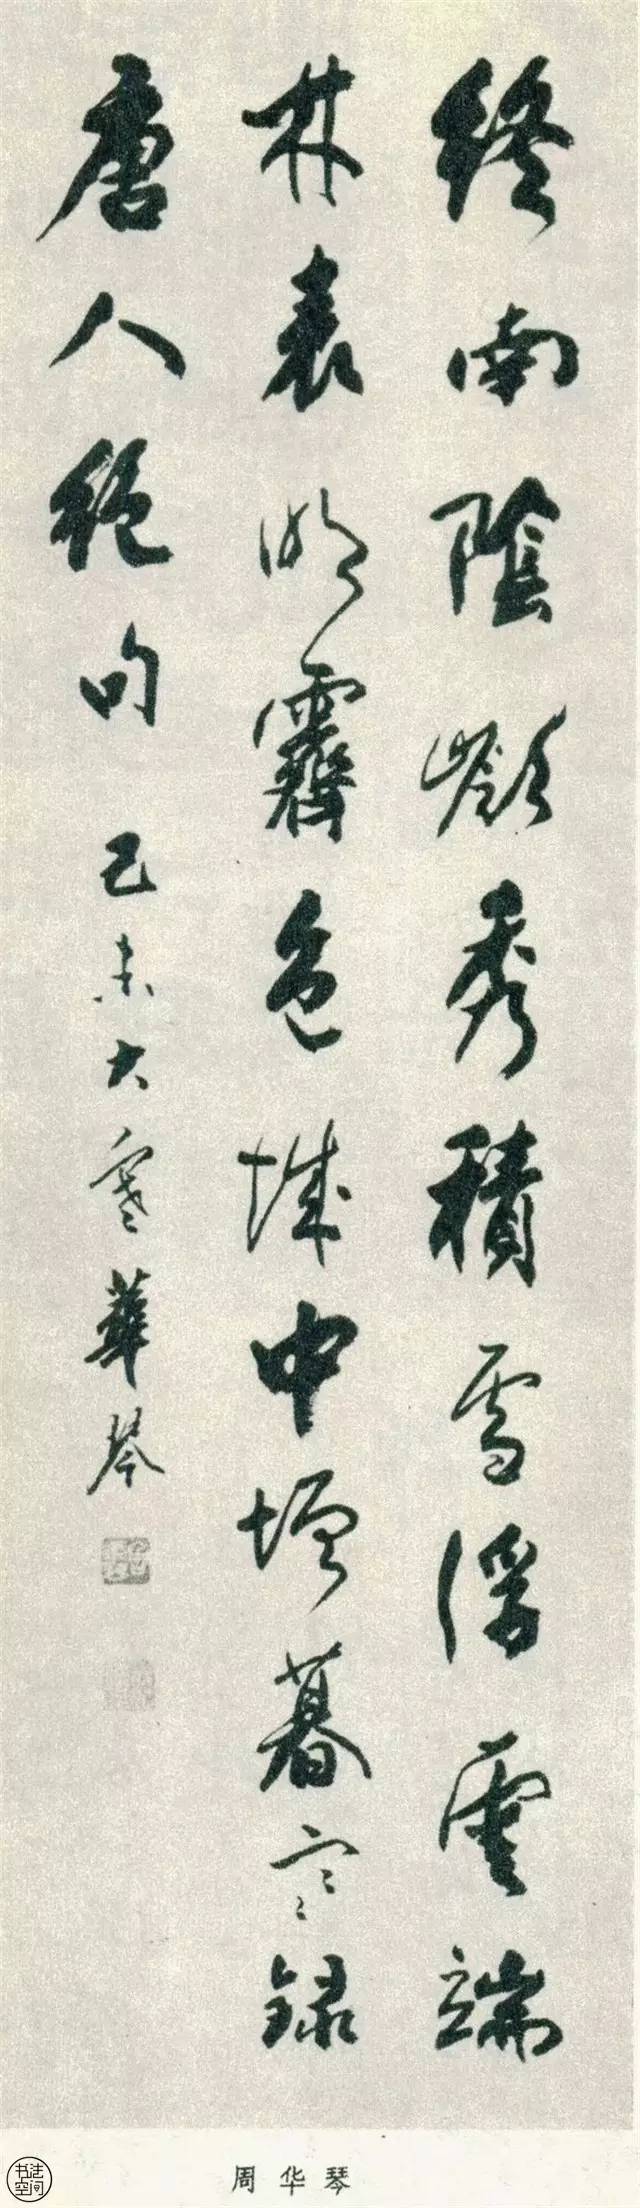 終南陰嶺秀積雪浮雲端
林表明霽色城中增暮寒錄
唐人絕句 己未大寒華琴
周华琴
书法空间